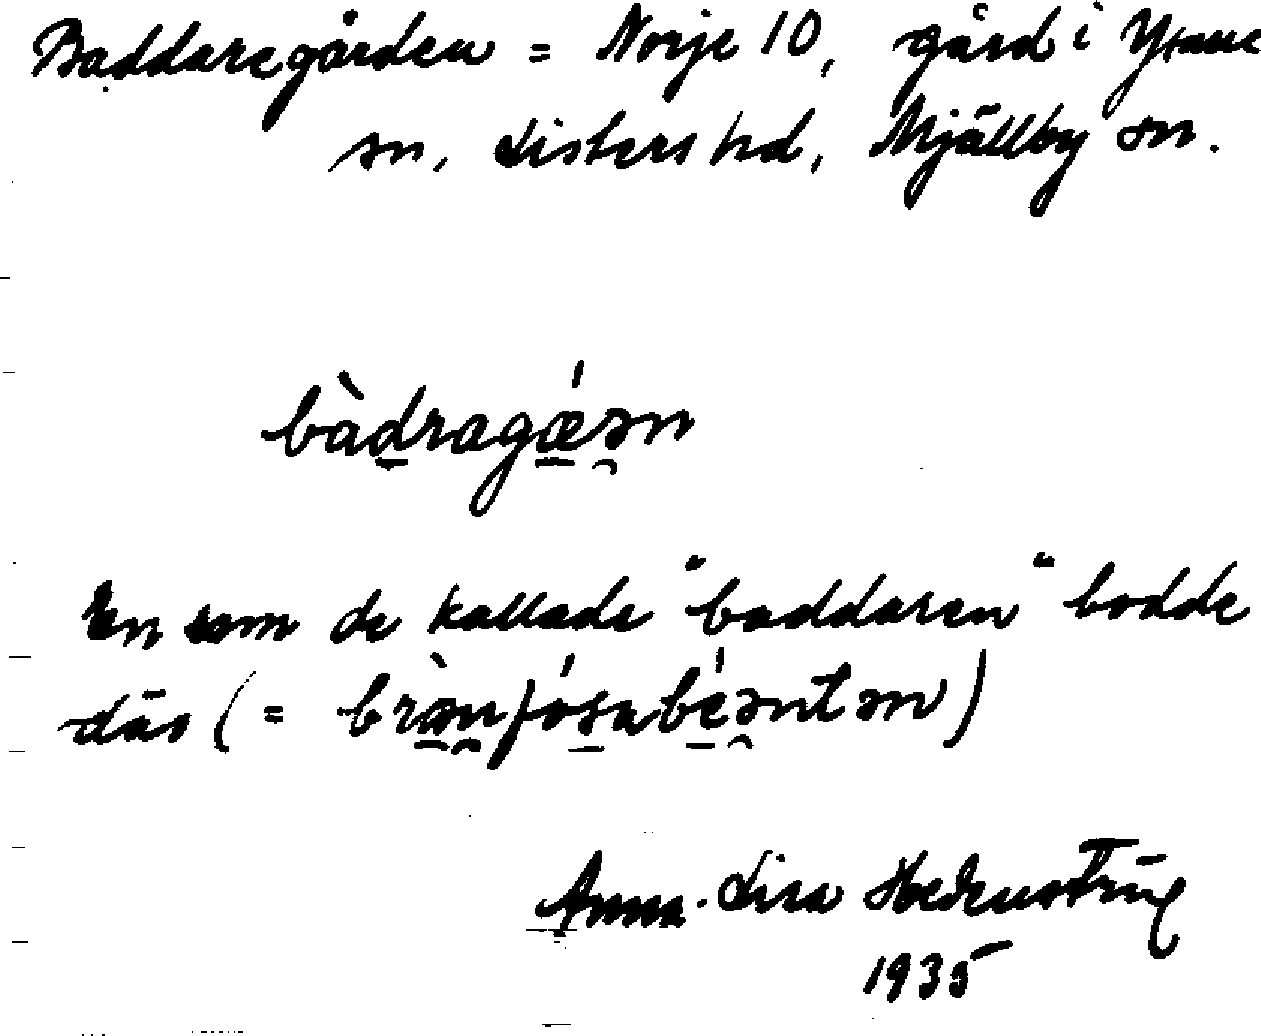 Baddaregården = Norje 10, gård i Ysane
sn, Listers hd, Mjällby sn.
bàdragǽən
En som de kallade "baddaren" bodde
där (=
Anna-Lisa
1935